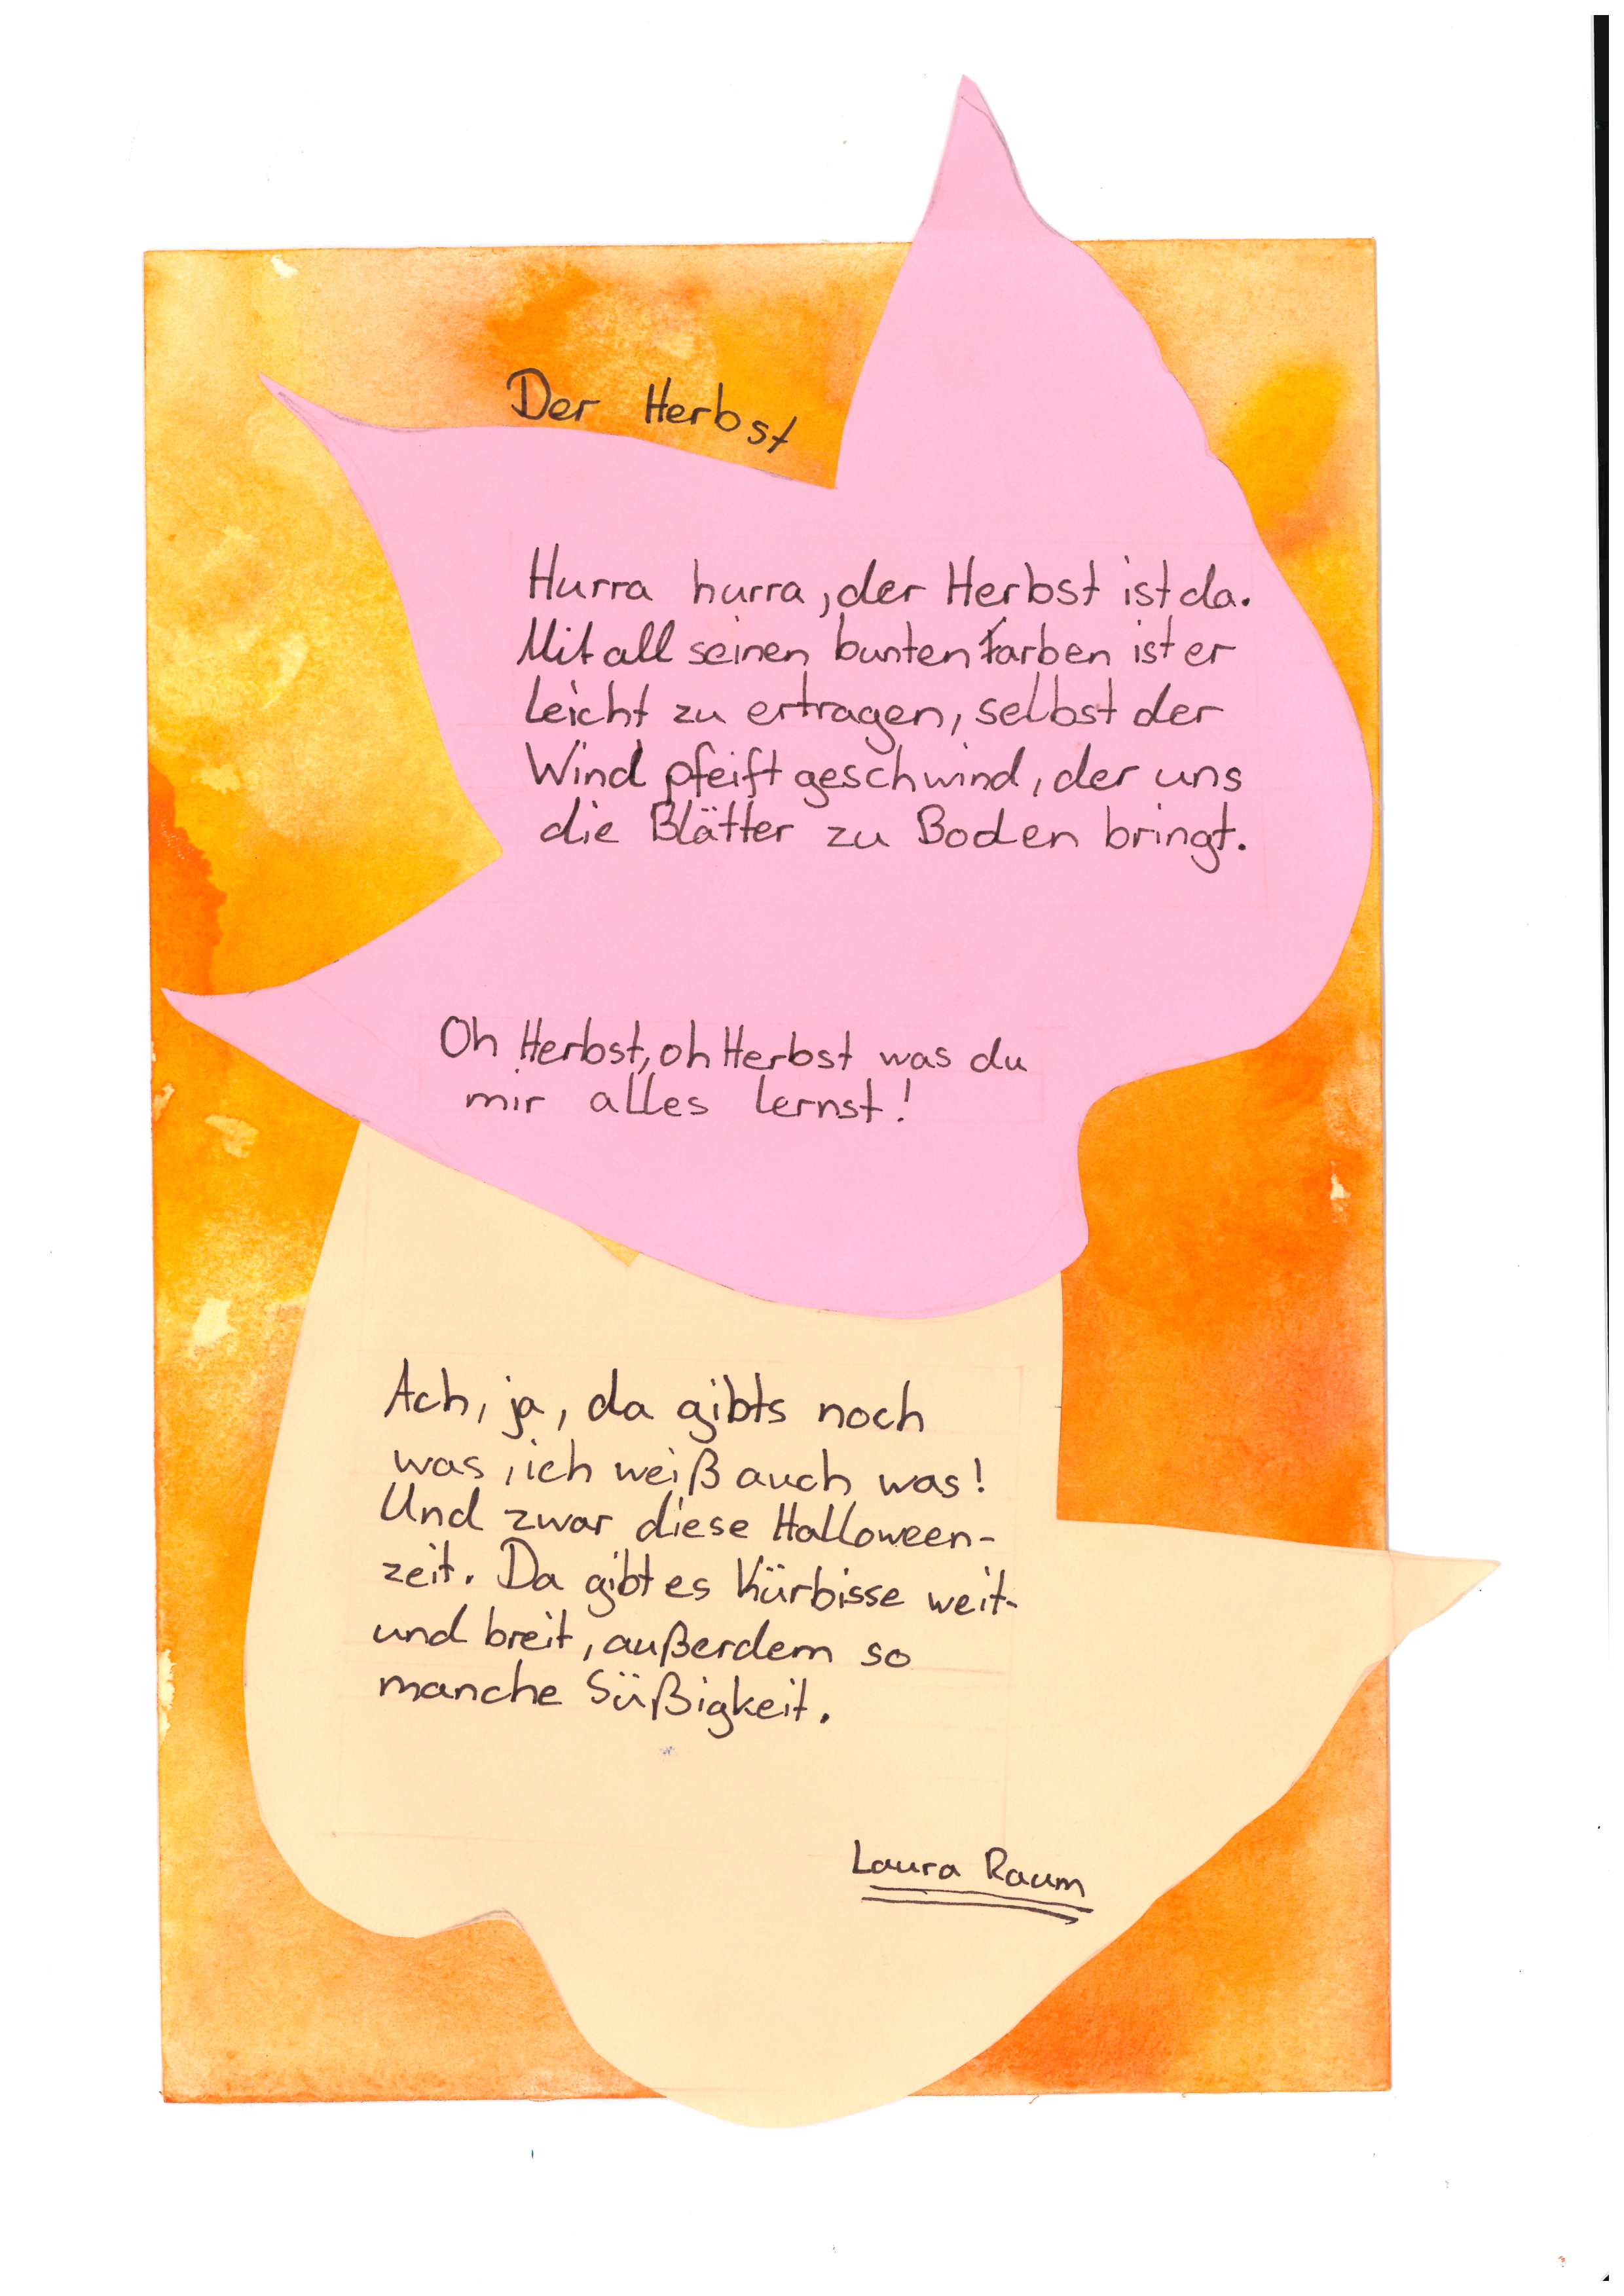 Der Herbst
Hurra hurra, der Herbst ist da.
Mit all seinen bunten Farben ist er
leicht zu ertragen, selbst der
Wind pfeift geschwind, der uns
die Blätter zu Boden bringt.
Oh Herbst, oh Herbst was du
mir alles lernst!
Ach, ja, da gibts noch
was, ich weiß auch was!
Und zwar diese Halloween-
zeit. Da gibt es Kürbisse weit-
und breit, außerdem so
manche Süßigkeit.
Laura Raum